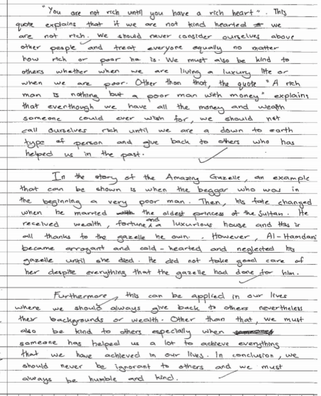 "You are not rich until you have a rich heart". This
quote explains that if we are not kind hearted we
are not rich. We should never consider ourselves above
other people and treat everyone equally no matter
how rich or poor he is. We must also be kind to
others whether when we are living a luxury life or
when we are poor. Other than that the quote "A rich
man is nothing but a poor man with money" explains
that eventhough we have all the money and wealth
someone could ever wish for, we should not
call ourselves rich until we are a down to earth
type of person and give back to others who has
helped us in the past.
In the story of the Amazing Gazelle, an example
that can be shown is when the beggar who was in
the beginning a very poor man. Then, his fate changed
when he married the oldest princess of the Sultan. He
received wealth, fortune and a luxurious house and this is
all thanks to the gazelle he own. However, Al-Hamdani
became arrogant and cold-hearted and neglected his
gazelle until she died. He did not take good care of
her despite everything that the gazelle had done for him.
Furthermore, this can be applied in our lives
where we should always give back to others nevertheless
their backgrounds or wealth. Other than that, we must
also be kind to others especially when
someone has helped us a lot to achieve everything
that we have achieved in our lives. In conclusion, we
should never be ignorant to others and we must
always be humble and kind.